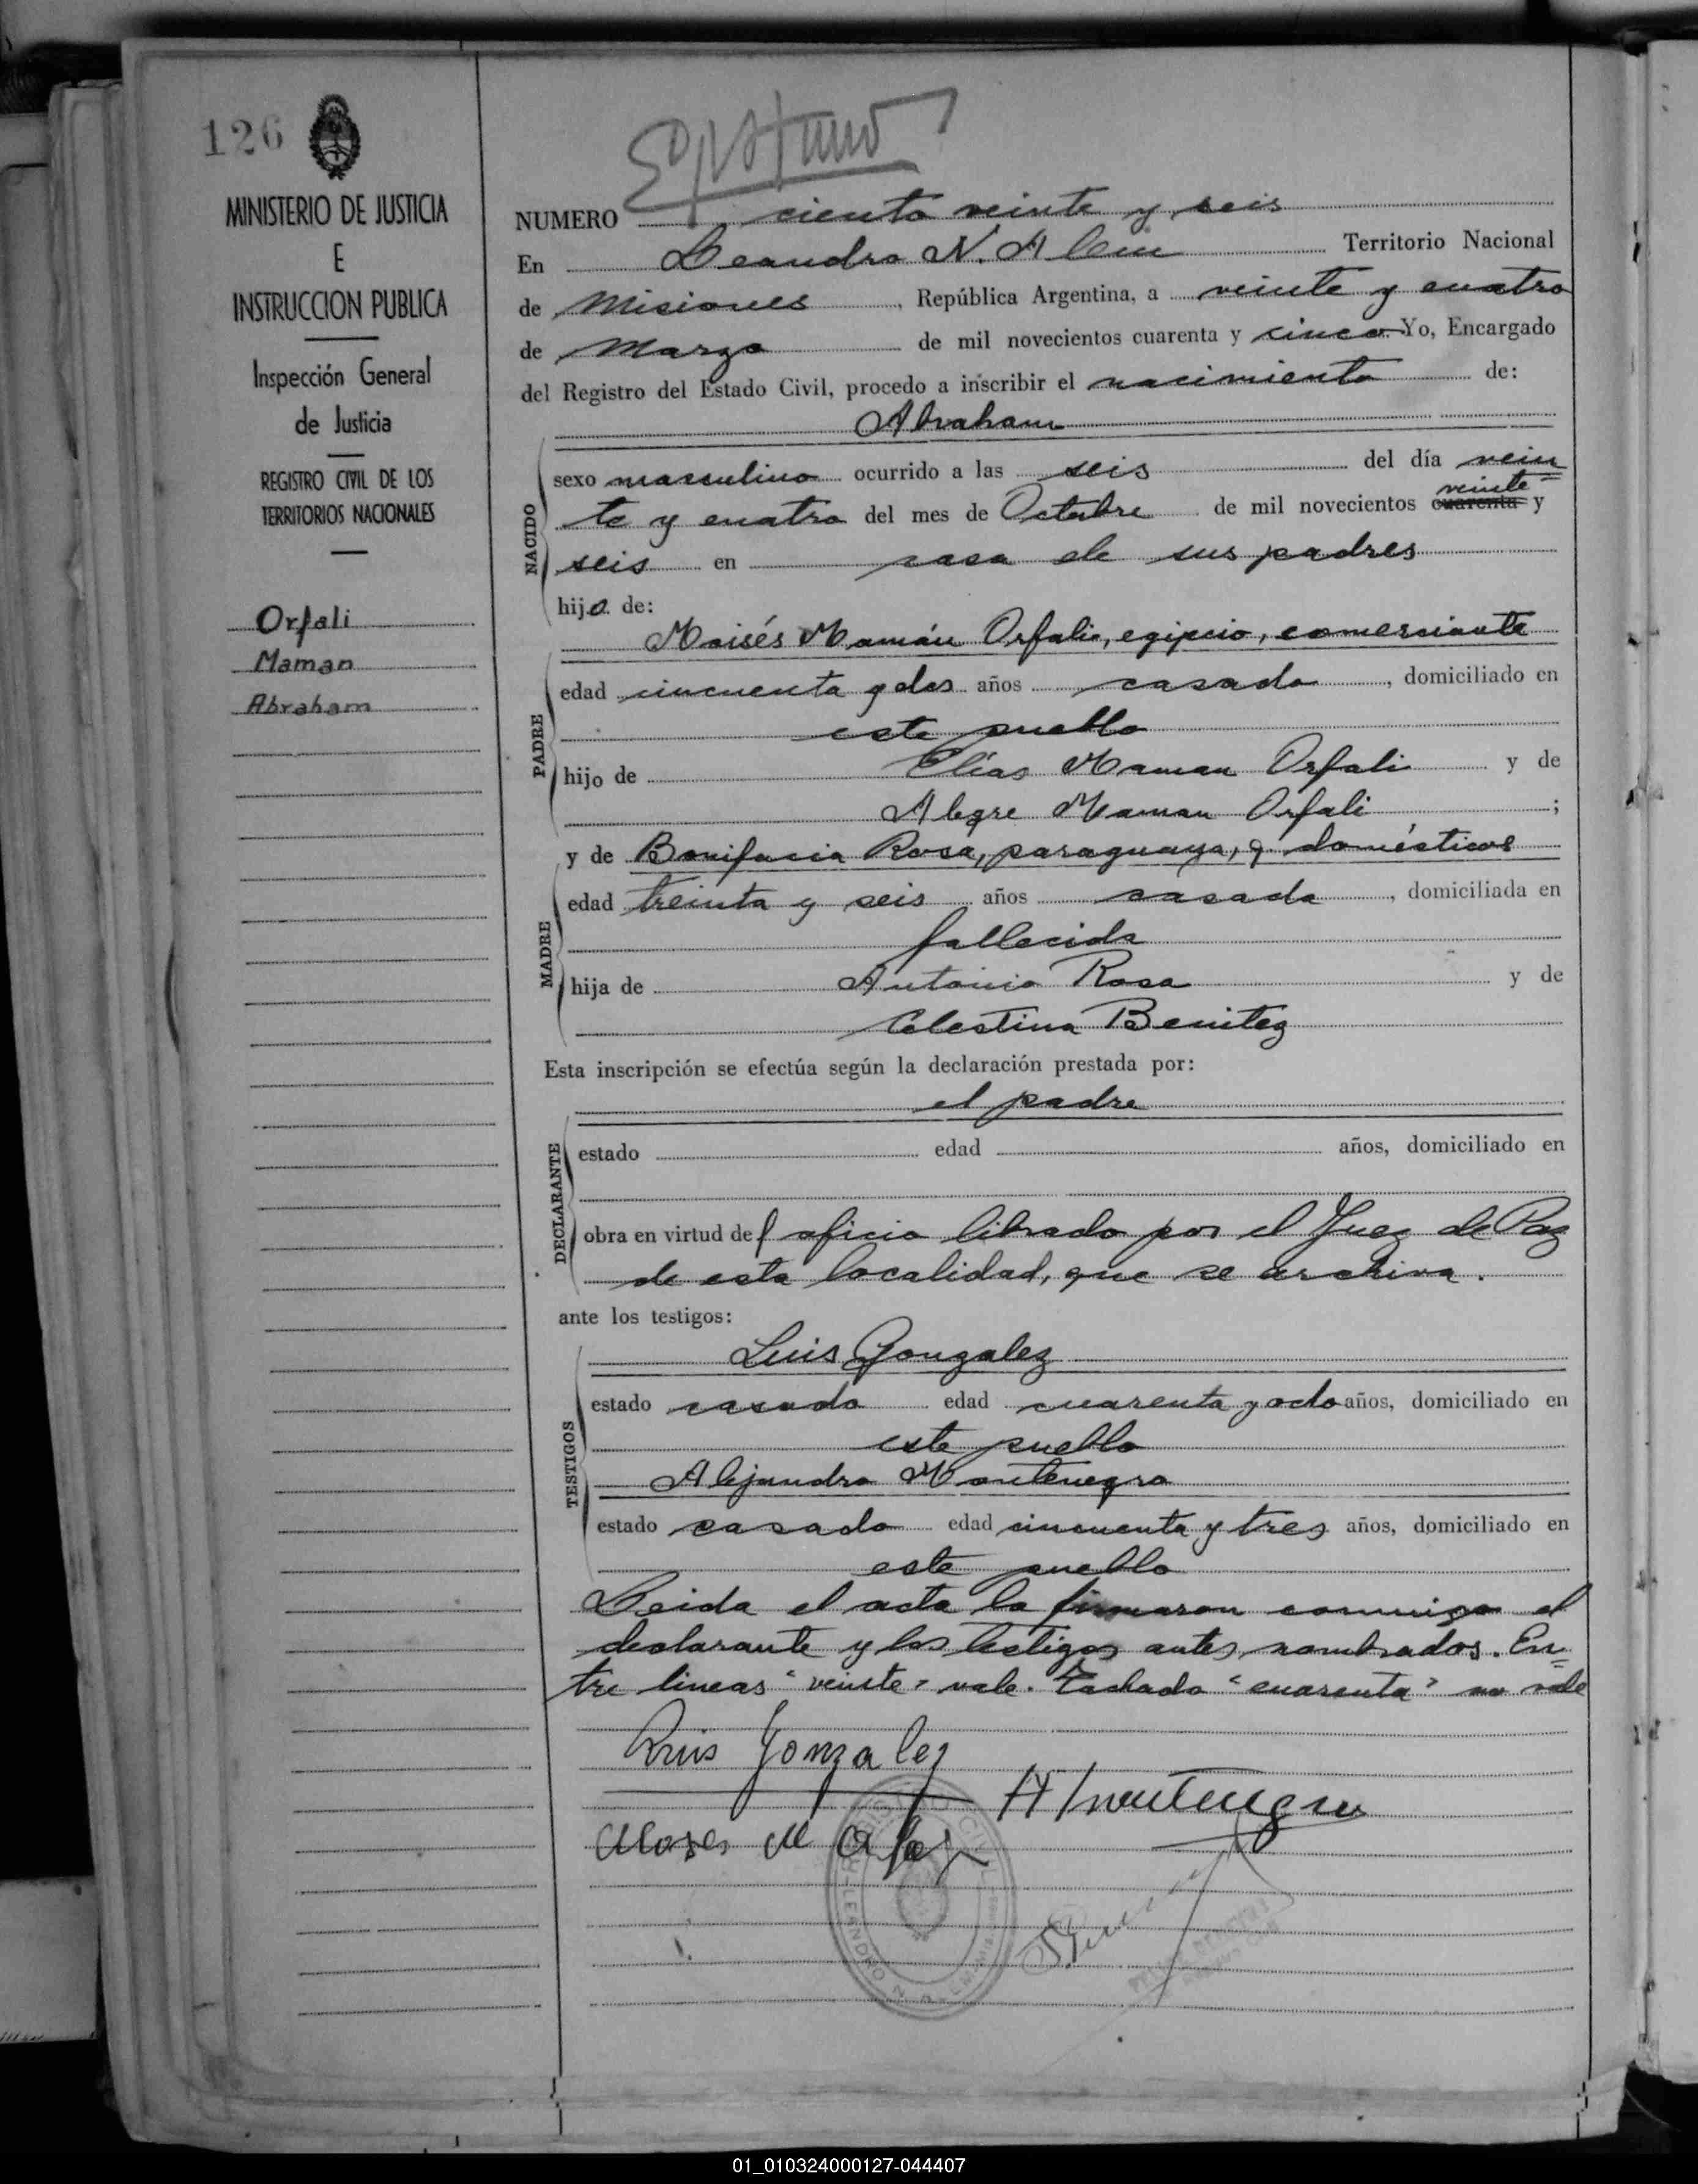 126
MINISTERIO DE JUSTICIA
E
INSTRUCCION PUBLICA
Inspección General
de Justicia
REGISTRO CIVIL DE LOS
TERRITORIOS NACIONALES
Orfali
Maman
Abraham
NUMERO ciento veinte y seis
En Leandro N. Alem Territorio Nacional
de Misiones, República Argentina, a veinte y cuatro
de Marzo de mil novecientos cuarenta y cinco Yo, Encargado
del Registro del Estado Civil, procedo a inscribir el nacimiento de:
Abraham
NACIDO
sexo masculino ocurrido a las seis del día vein
veinte
te y cuatro del mes de Octubre de mil novecientos cuarenta y
seis en casa de sus padres
hijo de:
PADRE
Moisés Mamán Orfali, egipcio, comerciante
edad cincuenta y dos años casado, domiciliado en
este pueblo
hijo de Elías Maman Orfali y de
Alegre Maman Orfali;
MADRE
y de Bonifacia Rosa, paraguaya, q. domésticos
edad treinta y seis años casada, domiciliada en
fallecida
hija de Antonio Rosa y de
Celestina Benitez
Esta inscripción se efectúa según la declaración prestada por:
DECLARANTE
el padre
estado edad años, domiciliado en
obra en virtud del oficio librado por el Juez de Paz
de esta localidad, que se archiva.
ante los testigos:
TESTIGOS
Luis Gonzalez
estado casado edad cuarenta y ocho años, domiciliado en
este pueblo
Alejandro Montenegro
estado casado edad cincuenta y tres años, domiciliado en
este pueblo
Leida el acta la firmaron conmigo el
declarante y los testigos antes nombrados. En
tre lineas "veinte" vale. Tachado "cuarenta" no vale
Luis Gonzalez
A Montenegro
Moses M
REGISTRO CIVIL
LEANDRO N. ALEM
01_010324000127-044407